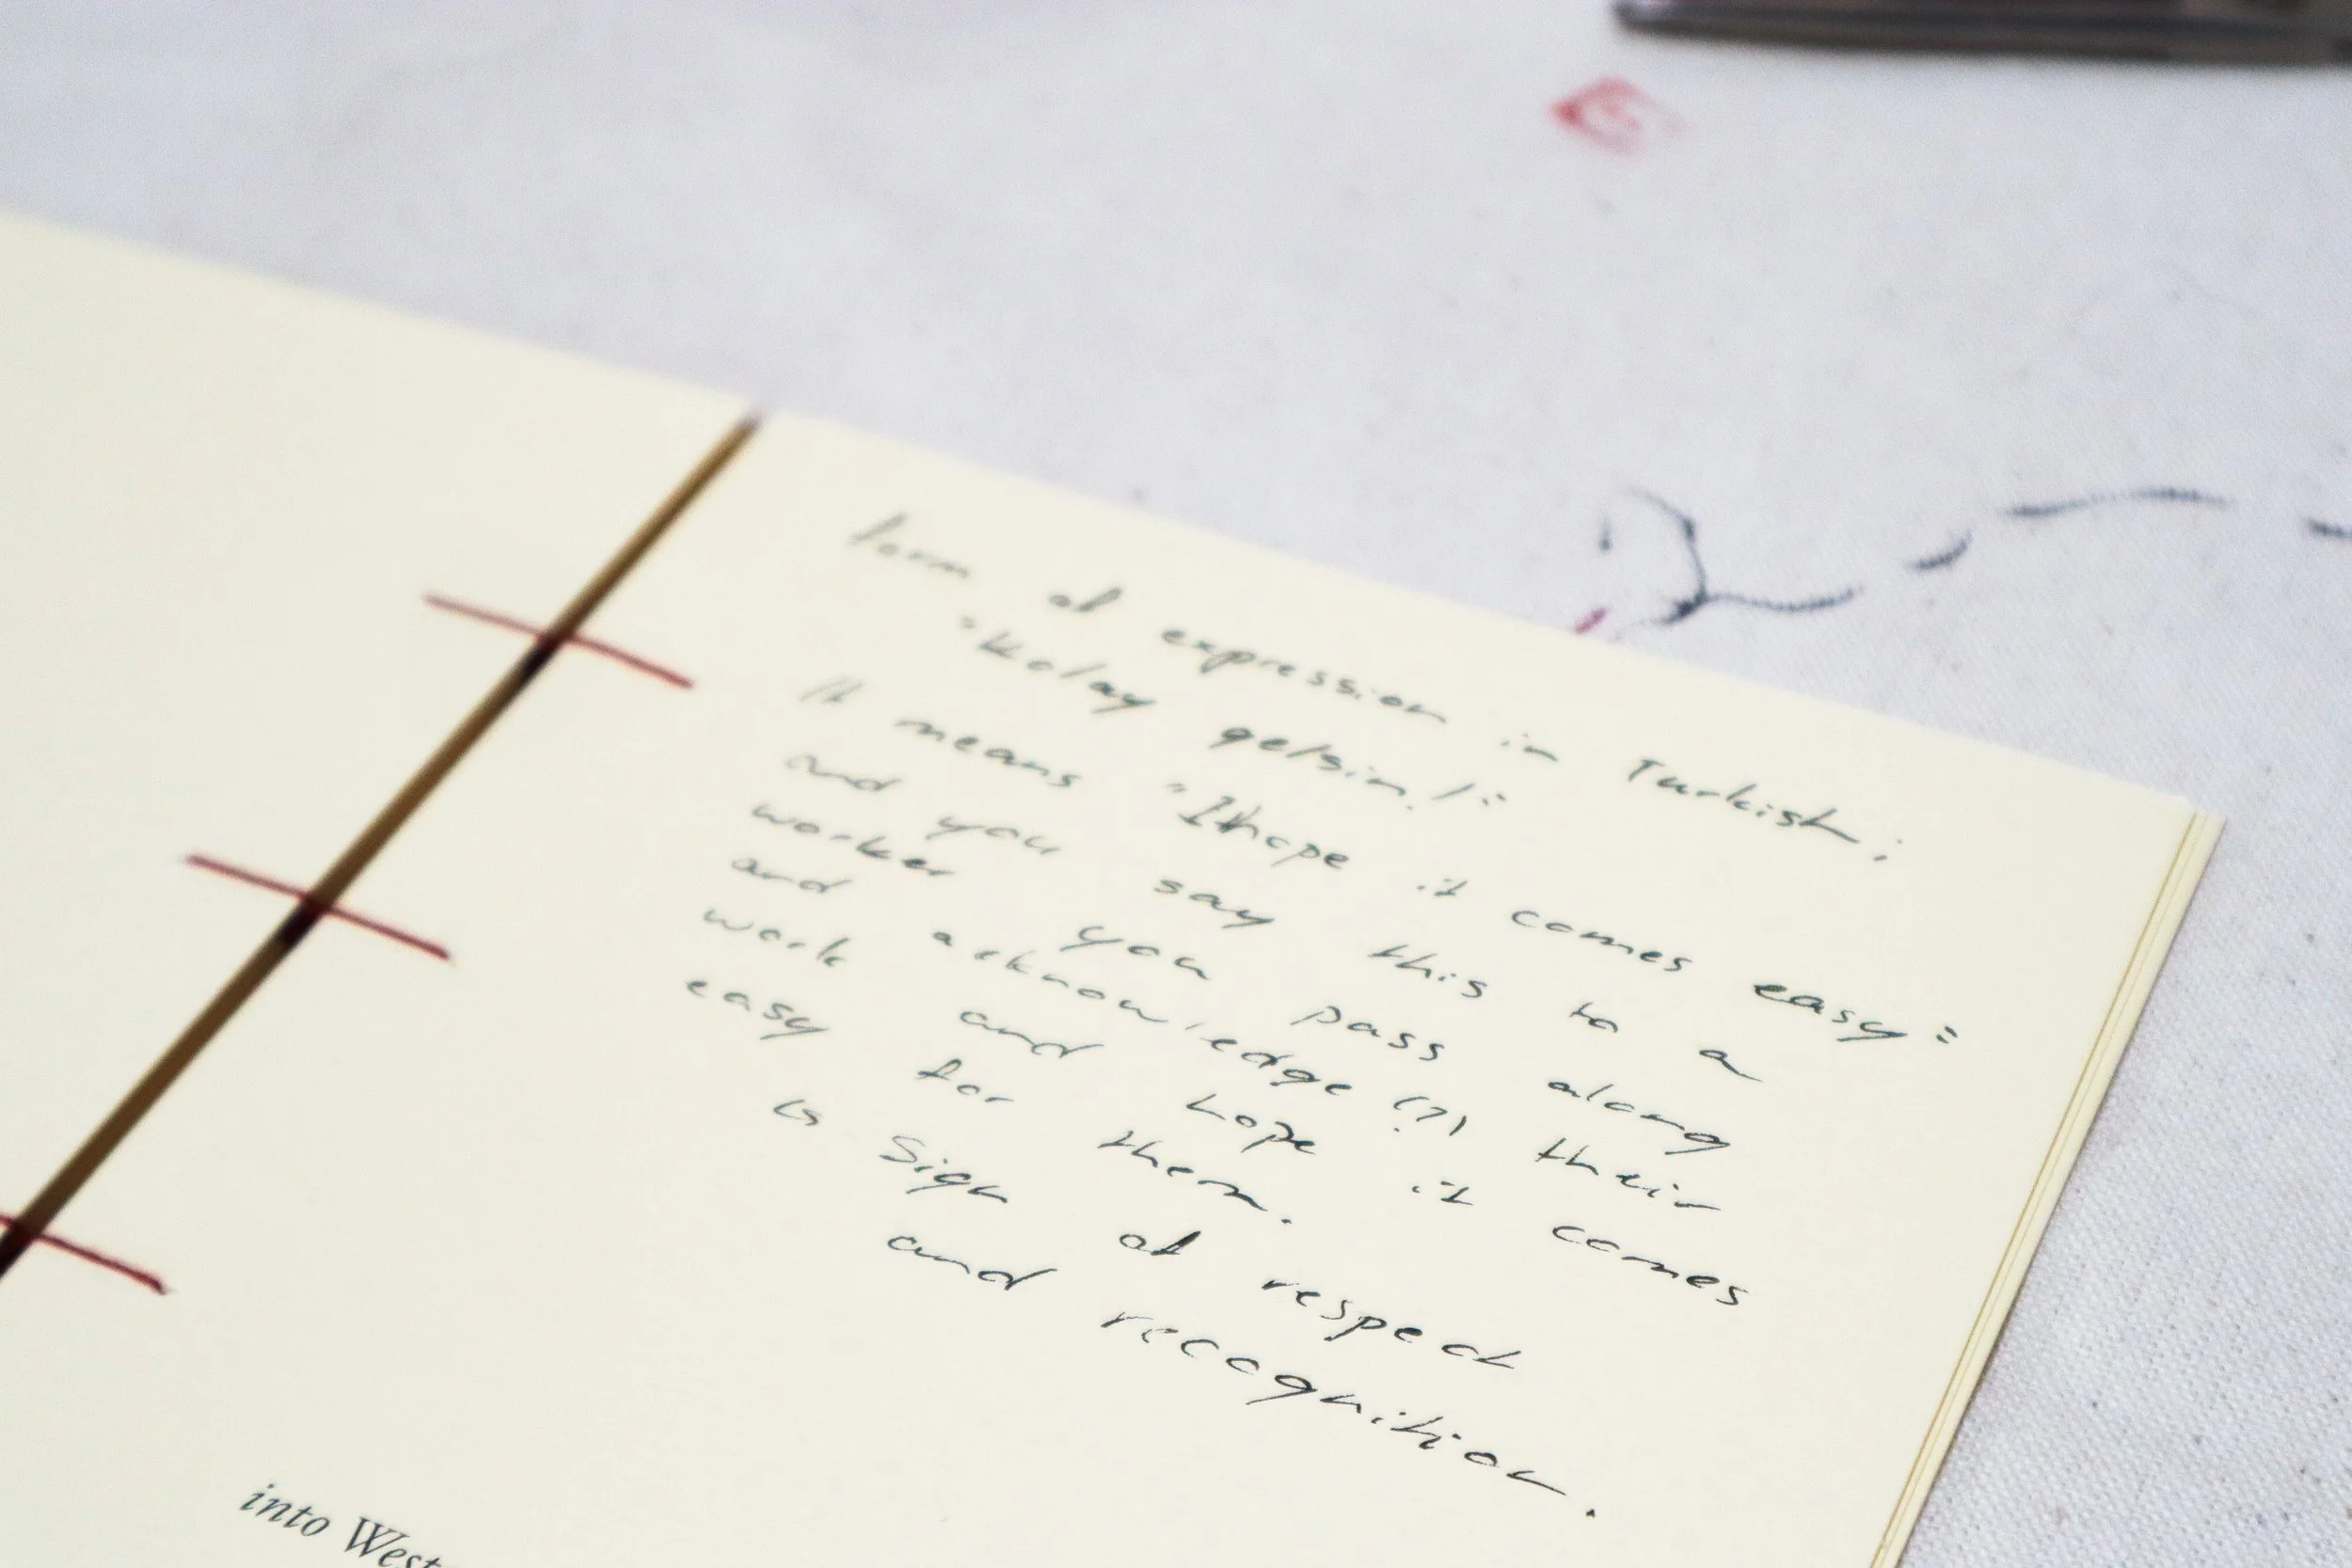 form of expression in Turkish:
"Kolay gelsin!"
It means "I hope it comes easy"
and you say this to a
worker you pass along
and acknowledge (?) their
work and hope it comes
easy for them.
is sign of respect
and recognition.
into West